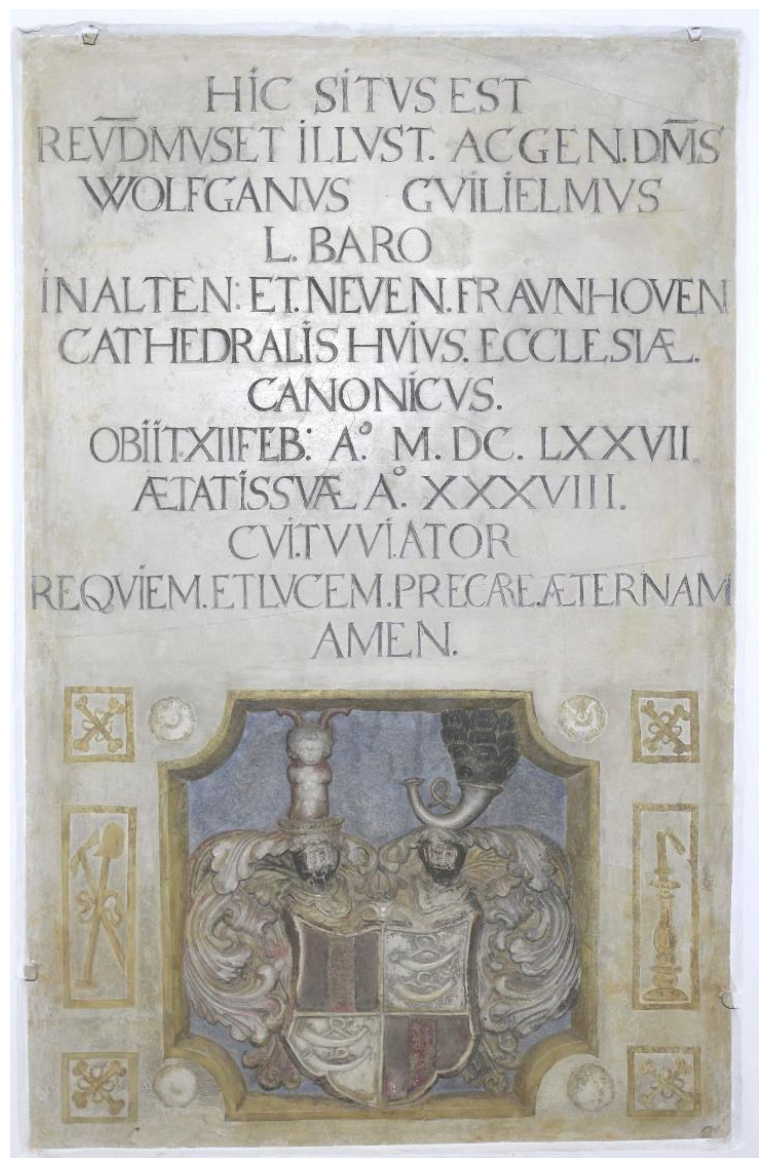 HIC SITVS EST
REV̅D̅MVS ET ILLVST. AC GEN. DM̅S
WOLFGANVS GVILIELMVS
L. BARO
IN ALTEN: ET. NEVEN. FRAVNHOVEN
CATHEDRALIS HVIVS. ECCLESIÆ.
CANONICVS.
OBIIT XII FEB: A.º M. DC. LXXVII.
ÆTATIS SVÆ Aº. XXXVIII.
CVI. TV VI.ATOR
REQVIEM. ET LVCEM. PRECARE. ÆTERNAM
AMEN.